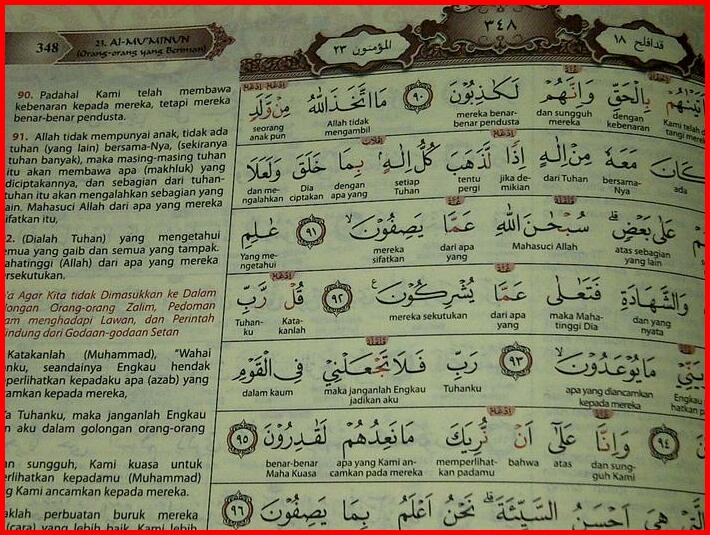 348
23. Al-MU'MINUN
(Orang-orang yang Beriman)
المؤمنون ٢٣
٣٤٨
قد افلح ١٨
90. Padahal Kami telah membawa
kebenaran kepada mereka, tetapi mereka
benar-benar pendusta.
91. Allah tidak mempunyai anak, tidak ada
tuhan (yang lain) bersama-Nya, (sekiranya
tuhan banyak), maka masing-masing tuhan
itu akan membawa apa (makhluk) yang
diciptakannya, dan sebagian dari tuhan-
tuhan itu akan mengalahkan sebagian yang
lain. Mahasuci Allah dari apa yang mereka
sifatkan itu,
2. (Dialah Tuhan) yang mengetahui
semua yang gaib dan semua yang tampak.
Mahatinggi (Allah) dari apa yang mereka
persekutukan.
a Agar Kita tidak Dimasukkan ke Dalam
olongan Orang-orang Zalim, Pedoman
am menghadapi Lawan, dan Perintah
lindung dari Godaan-godaan Setan
Katakanlah (Muhammad), "Wahai
anku, seandainya Engkau hendak
perlihatkan kepadaku apa (azab) yang
camkan kepada mereka,
a Tuhanku, maka janganlah Engkau
an aku dalam golongan orang-orang
an sungguh, Kami kuasa untuk
erlihatkan kepadamu (Muhammad)
ng Kami ancamkan kepada mereka.
aklah perbuatan buruk mereka
(cara) yang lebih baik, Kami lebih
بِالْحَقِّ وَإِنَّهُمْ لَكَاذِبُونَ ٩٠ مَا اتَّخَذَ اللهُ مِنْ وَّلَدٍ
Kami telah d tangi mereka dengan kebenaran dan sungguh mereka mereka benar-benar pendusta Allah tidak mengambil seorang anak pun
كَانَ مَعَهُ مِنْ إِلٰهٍ إِذًا لَّذَهَبَ كُلُّ إِلٰهٍ بِمَا خَلَقَ وَلَعَلَا
ada bersama-Nya dari Tuhan jika demikian tentu pergi setiap Tuhan dengan apa yang Dia ciptakan dan mengalahkan
عَلٰى بَعْضٍ سُبْحٰنَ اللهِ عَمَّا يَصِفُونَ ٩١ عٰلِمِ
atas sebagian yang lain Mahasuci Allah dari apa yang mereka sifatkan Yang mengetahui
وَالشَّهَادَةِ فَتَعٰلٰى عَمَّا يُشْرِكُونَ ٩٢ قُلْ رَّبِّ
dan yang nyata maka Mahatinggi Dia dari apa yang mereka sekutukan Katakanlah Tuhanku
مَا يُوعَدُونَ ٩٣ رَبِّ فَلَا تَجْعَلْنِي فِي الْقَوْمِ
Engkau apa yang diancamkan kepada mereka Tuhanku maka janganlah Engkau jadikan aku dalam kaum
٩٤ وَإِنَّا عَلٰى أَنْ نُّرِيَكَ مَا نَعِدُهُمْ لَقٰدِرُونَ ٩٥
dan sungguh Kami atas bahwa memperlihatkan padamu apa yang Kami ancamkan pada mereka benar-benar Maha Kuasa
الَّتِي هِيَ أَحْسَنُ السَّيِّئَةَ نَحْنُ أَعْلَمُ بِمَا يَصِفُونَ ٩٦